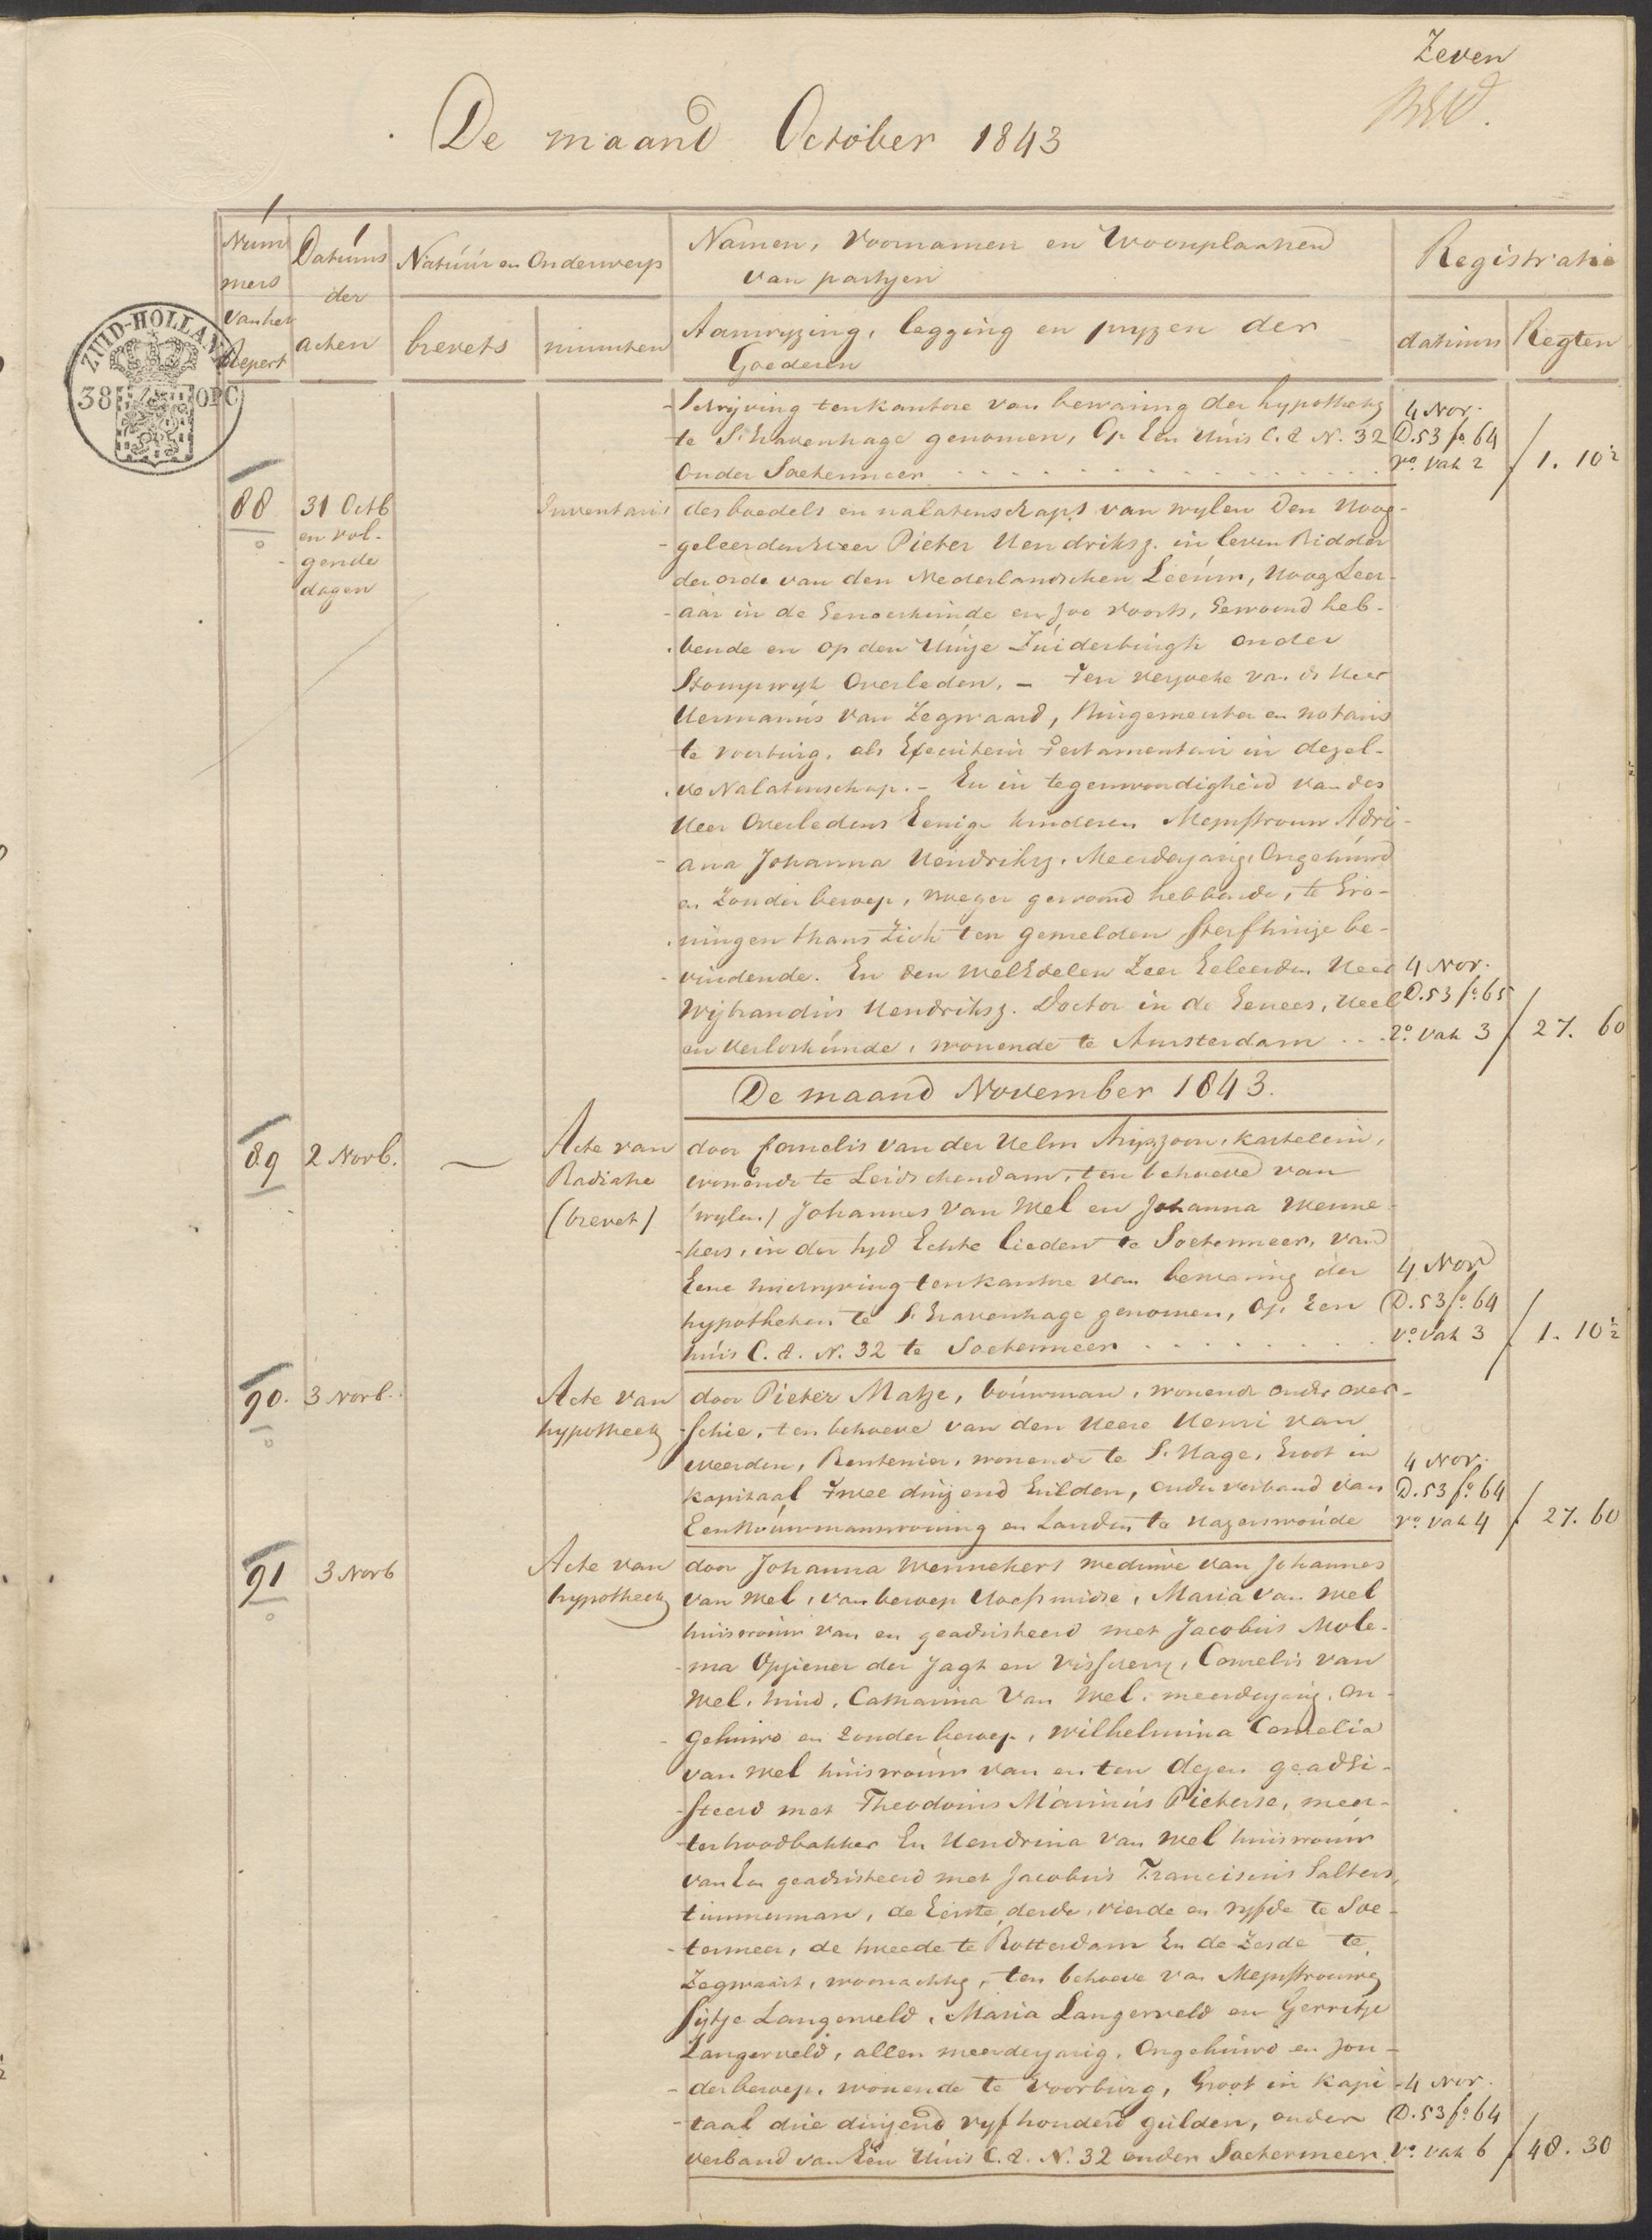 Zeven
De maand October 1843
Nummers van het Repert
Datums der acten
Natuur en Onderwerp
brevets
minuten
Namen, Voornamen en Woonplaatsen
van partyen
Aanwyzing, legging en pryzen der
Goederen
Registratie
datums
Regten
ZUID-HOLLAND
38 OPC
schryving ten kantore van bewaring der hypotheek
te S. Gravenhage genomen, Op Een Huis C. &. N. 32
onder Soetermeer
4 Nov.
D. 53 fo. 64
Vo. Vak 2
1. 10½
88
31 Octb
en vol-
gende
dagen
Inventaris
des boedels en nalatenschaps van wylen Den Hoog-
geleerden Heer Pieter Hendriksz. in leven Ridder
der orde van den Nederlandschen Leeuw, Hoog Leer-
aar in de Geneeskunde en zoo voorts, Gewoond heb-
bende en op den Huize Zuiderburgh onder
Stompwyk Overleden. - Ten verzoeke van de Heer
Hermanus van Zegwaard, Burgemeester en notaris
te voorburg, als Executeur Testamentair in dezel-
ve Nalatenschap. - En in tegenwoordigheid van des
Heer Overledens Eenige kinderen Mejufvrouw Adri-
ana Johanna Hendriksz. Meerderjarig, Ongehuwd
en Zonder beroep, vroeger gewoond hebbende, te Gro-
ningen thans Zich ten gemelden sterfhuize be-
vindende. En den WelEdelen Zeer Geleerden Heer
Wybrandus Hendriksz. Doctor in de Genees, Heel
en Verloskunde, wonende te Amsterdam
4 Nov.
D. 53 fo. 65
Vak 3
27. 60
De maand November 1843.
89
2 Novb.
Acte van
Radiatie
(brevet)
door Cornelis van der Helm Thyszoon, kastelein,
wonende te Leidschendam, ten behoeve van
(wylen) Johannes van Mel en Johanna Wenne-
kers, in der tyd Echte lieden te Soetermeer, van
Eene inschryving ten kantore van bewaring der
hypotheken te S. Gravenhage genomen, Op Een
huis C. &. N. 32 te Soetermeer
4 Nov
D. 53 fo. 64
Vo. Vak 3
1. 10½
90.
3 Novb.
Acte van
hypotheek
door Pieter Matze, bouwman, wonende onder over-
schie, ten behoeve van den Heere Henri van
Weerden, Rentenier, wonende te S. Hage, Groot in
kapitaal Twee duizend Guilden, onder verband van
Een Bouwmanswoning en Landen te Hazerswoude
4 Nov.
D. 53 fo. 64
Vo. Vak 4
27. 60
91
3 Novb
Acte van
hypotheek
door Johanna Wennekers weduwe van Johannes
van Mel, van beroep Hoefsmidse, Maria van Mel
huisvrouw van en geadsisteerd met Jacobus Mole-
ma Opziener der Jagt en Visschery, Cornelis van
Mel, smid, Catharina Van Mel, meerderjarig, on-
gehuwd en Zonder beroep, Wilhelmina Cornelia
van Mel huisvrouw van en ten dezen geadsi-
steerd met Theodorus Marinus Pieterse, mees-
ter broodbakker En Hendrina van Mel huisvrouw
van En geadsisteerd met Jacobus Franciscus Salters,
timmerman, de Eerste, derde, vierde en vyfde te Soe-
termeer, de tweede te Rotterdam En de Zesde te
Zegwaart, woonachtig, ten behoeve van Mejufvrouwe
Sytje Langerveld, Maria Langerveld en Gerritje
Langerveld, allen meerderjarig, Ongehuwd en zon-
der beroep, wonende te Voorburg, Groot in kapi-
taal drie duizend vyf honderd gulden, onder
verband van Een Huis C. &. N. 32 onder Soetermeer.
4 Nov.
D. 53 fo. 64
Vo. Vak 6
48. 30